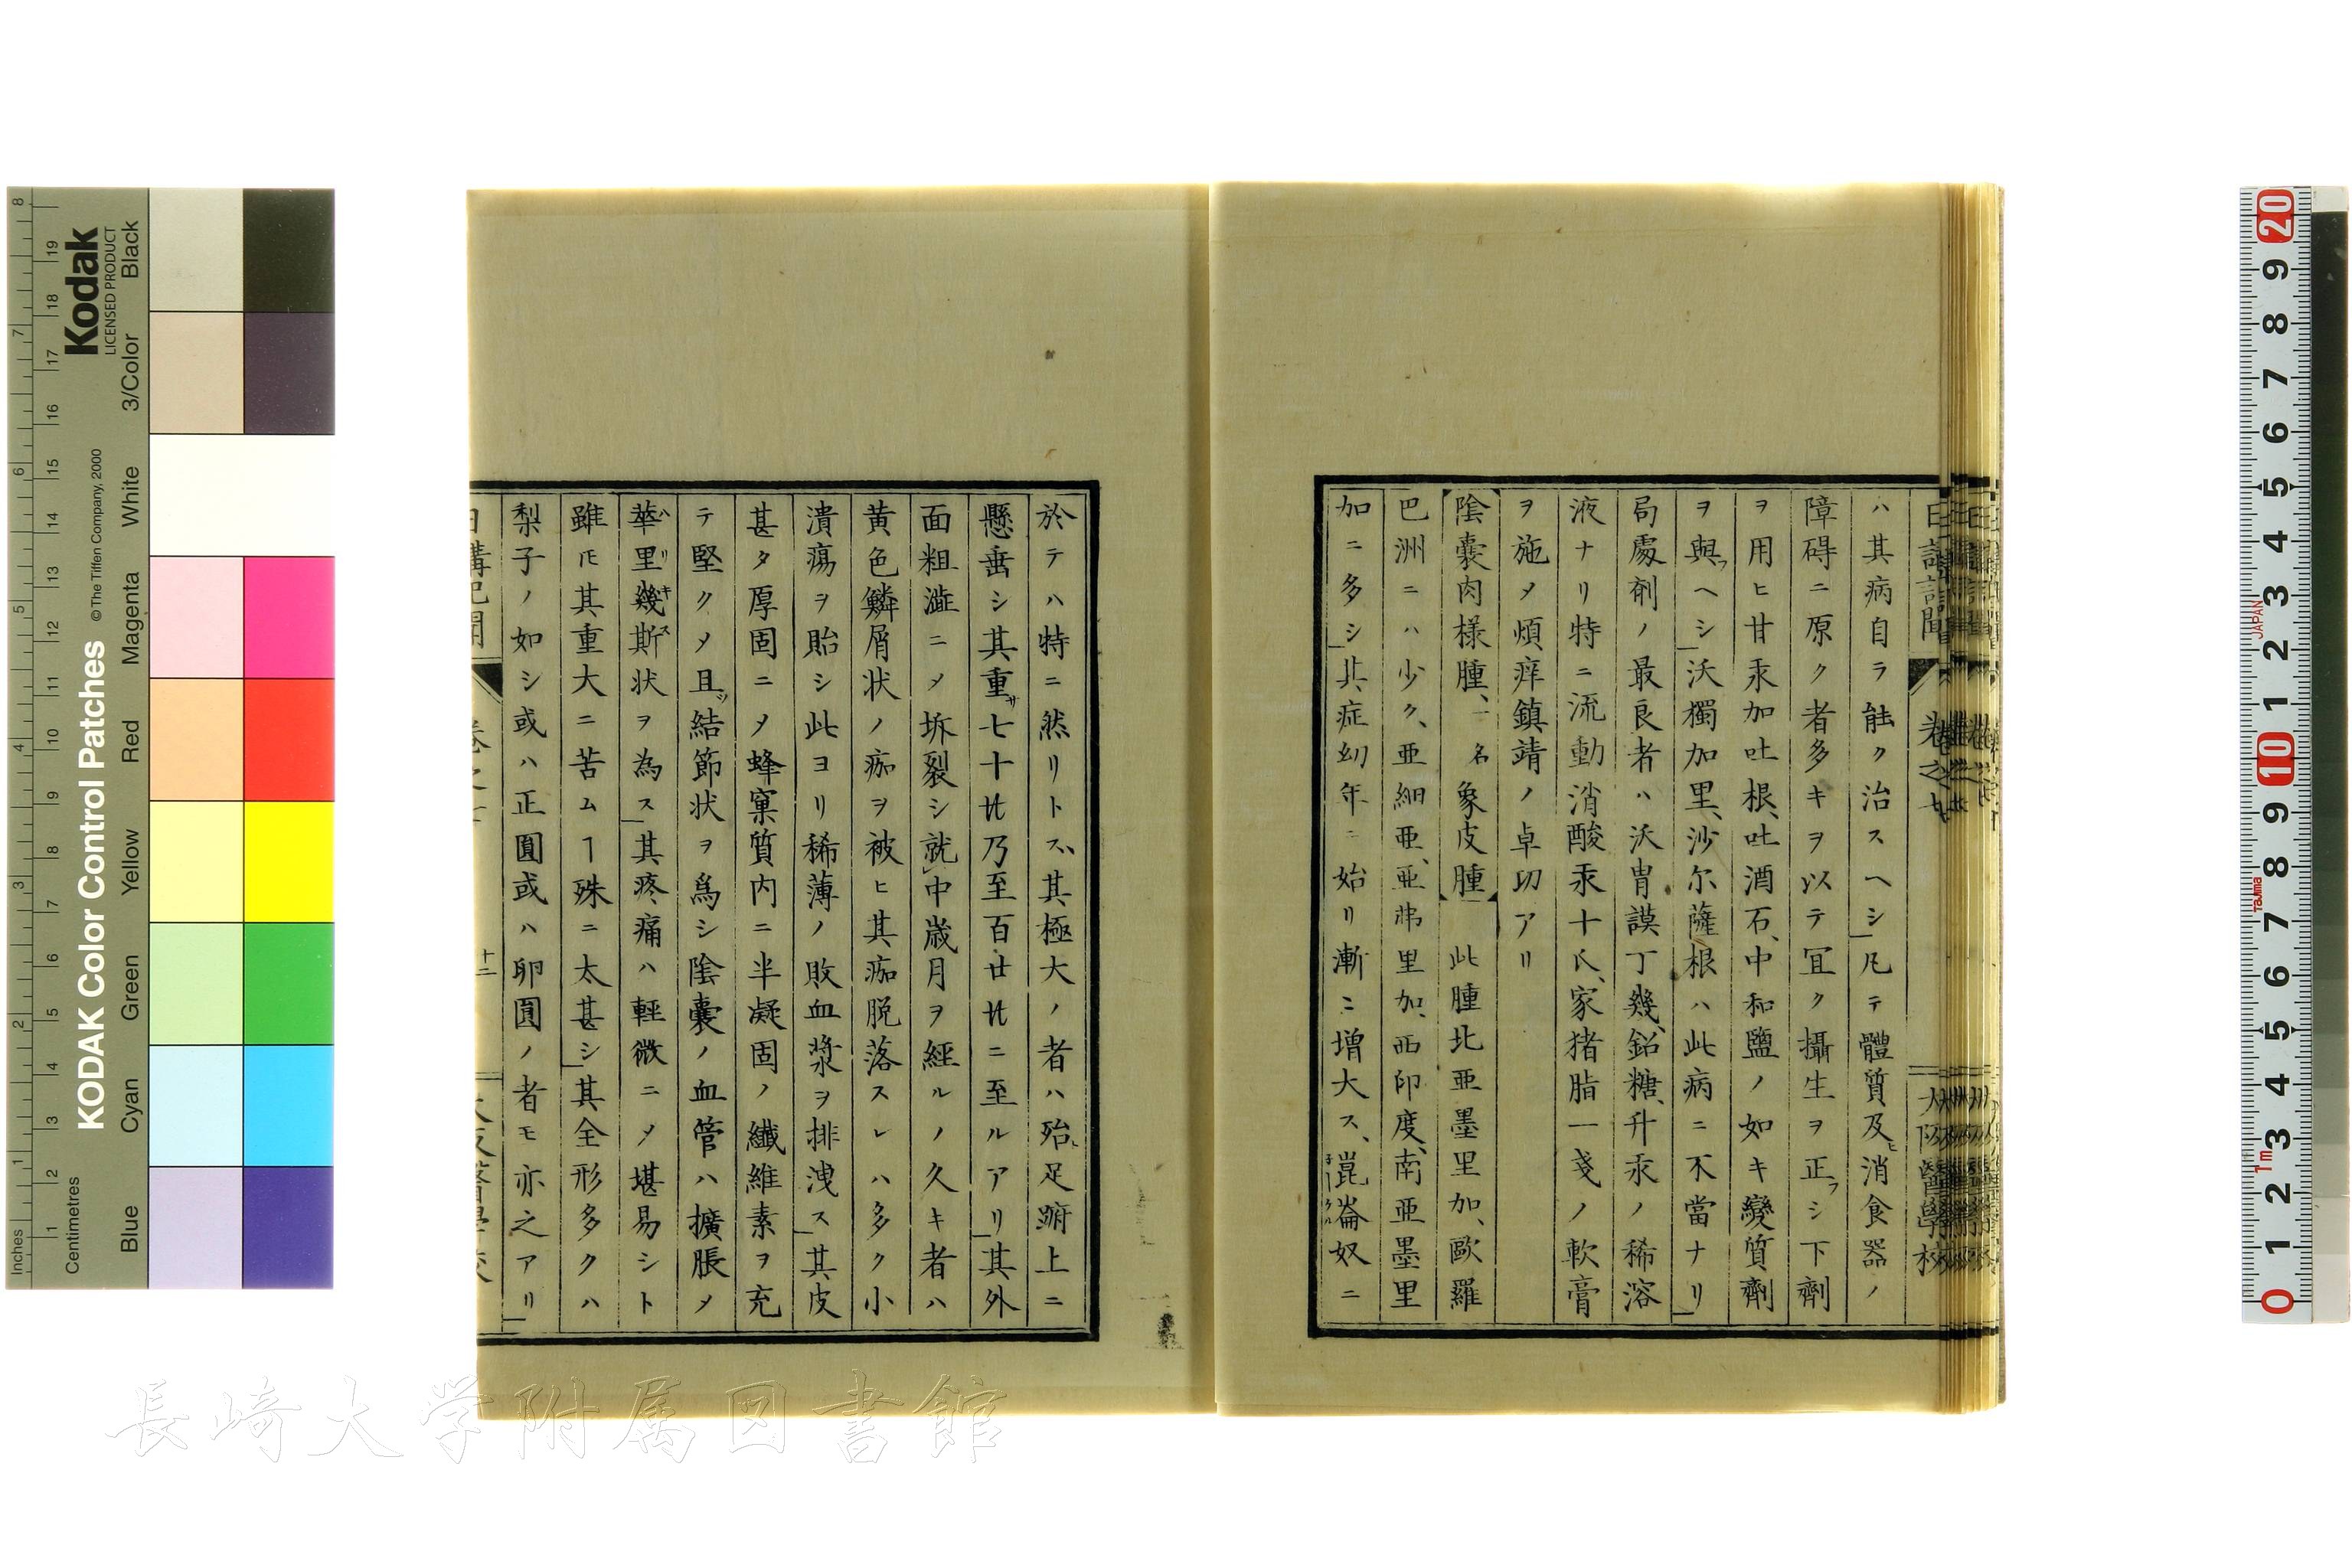 日講記聞 卷之七 大阪醫學校
ハ其病自ラ能ク治スヘシ凡テ體質及ヒ消食器ノ
障碍ニ原ク者多キヲ以テ冝ク攝生ヲ正フシ下劑
ヲ用ヒ甘汞加吐根、吐酒石、中和鹽ノ如キ變質劑
ヲ與フヘシ沃獨加里、沙尔薩根ハ此病ニ不當ナリ
局處剤ノ最良者ハ沃胄謨丁幾、鉛糖、升汞ノ稀溶
液ナリ特ニ流動消酸汞十氏、家猪脂一戔ノ軟膏
ヲ施メ煩痒鎮靖ノ卓功アリ
陰囊肉様腫、一名象皮腫 此腫北亜墨里加、歐羅
巴洲ニハ少ク、亜細亜、亜弗里加、西印度、南亜墨里
加ニ多シ其症幼年ニ始リ漸ニ増大ス、崑崙奴ニ
於テハ特ニ然リトス、其極大ノ者ハ殆ト足跗上ニ
懸垂シ其重サ七十比乃至百廿比ニ至ルアリ其外
面粗澁ニメ坼裂シ就中歳月ヲ經ルノ久キ者ハ
黄色鱗屑状ノ痂ヲ被ヒ其痂脱落スレハ多ク小
潰瘍ヲ貽シ此ヨリ稀薄ノ敗血漿ヲ排洩ス其皮
甚タ厚固ニメ蜂窠質内ニ半凝固ノ纎維素ヲ充
テ堅クメ且ツ結節状ヲ爲シ陰囊ノ血管ハ擴脹メ
華里幾斯状ヲ為ス其疼痛ハ輕微ニメ堪易シト
雖𪜈其重大ニ苦ムヿ殊ニ太甚シ其全形多クハ
梨子ノ如シ或ハ正圓或ハ卵圓ノ者モ亦之アリ
日講記聞 卷之七 十二 大阪醫學校
KODAK Color Control Patches
© The Tiffen Company, 2000
Kodak
LICENSED PRODUCT
Inches
Centimetres
Blue Cyan Green Yellow Red Magenta White 3/Color Black
JAPAN
Tajima
1m
長崎大学附属図書館